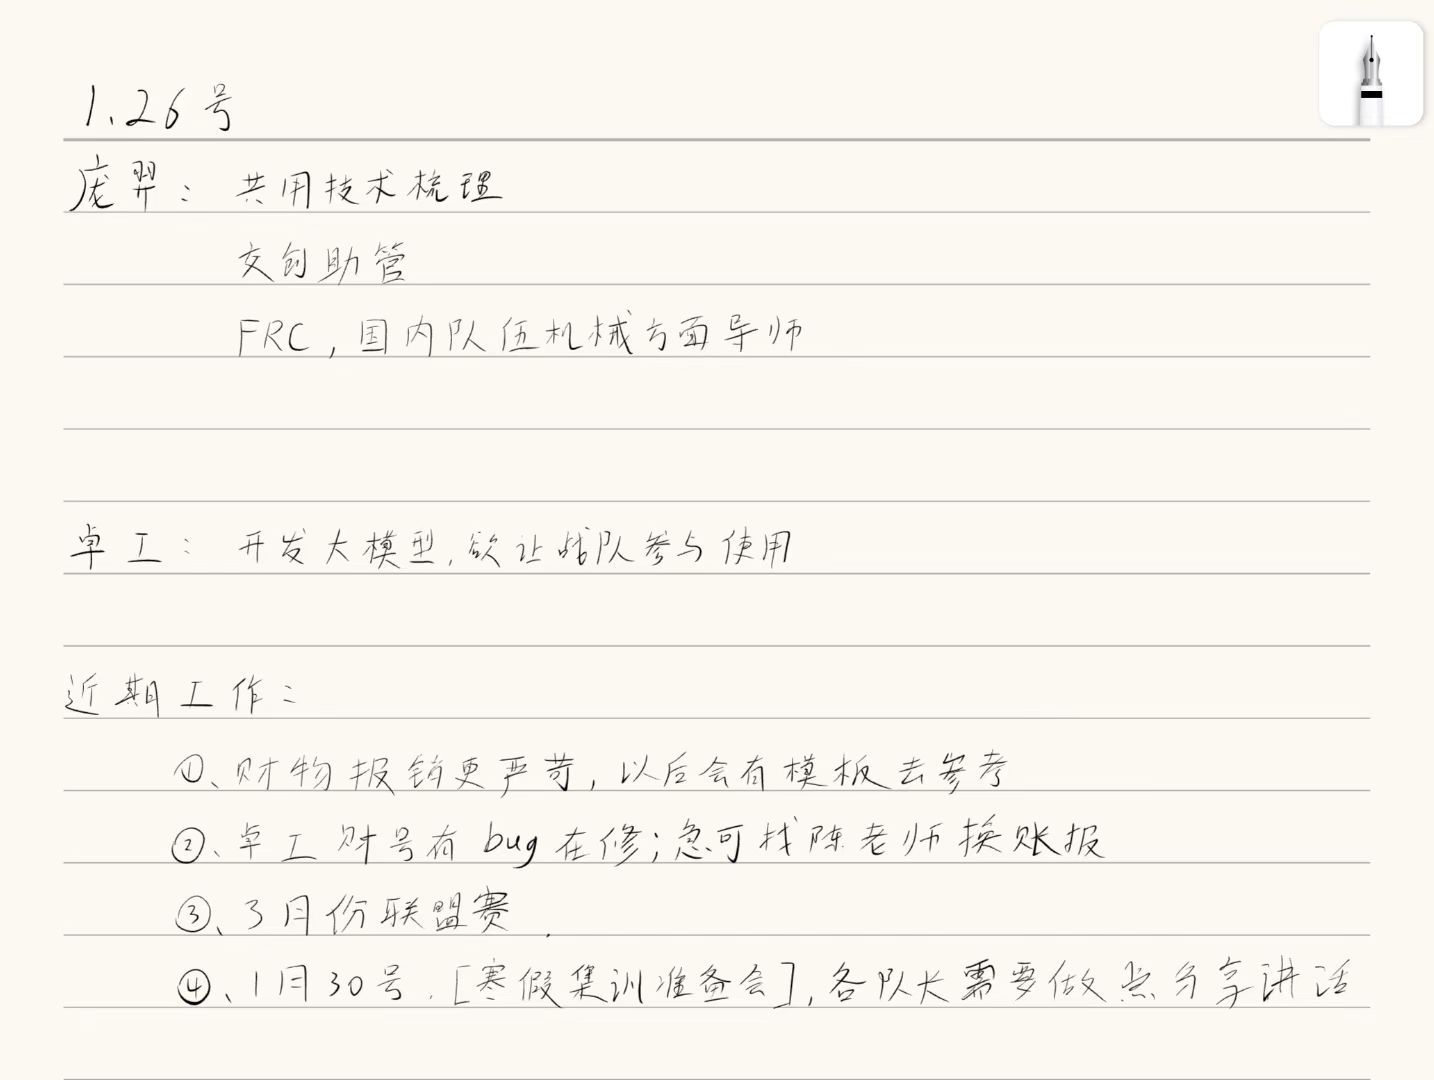 1.26号
庞羿：共用技术梳理
交创助管
FRC，国内队伍机械方面导师
卓工：开发大模型，欲让战队参与使用
近期工作：
①、财物报销更严苛，以后会有模板去参考
②、卓工财号有bug在修；急可找陈老师换账报
③、3月份联盟赛.
④、1月30号.[寒假集训准备会]，各队长需要做点分享讲话